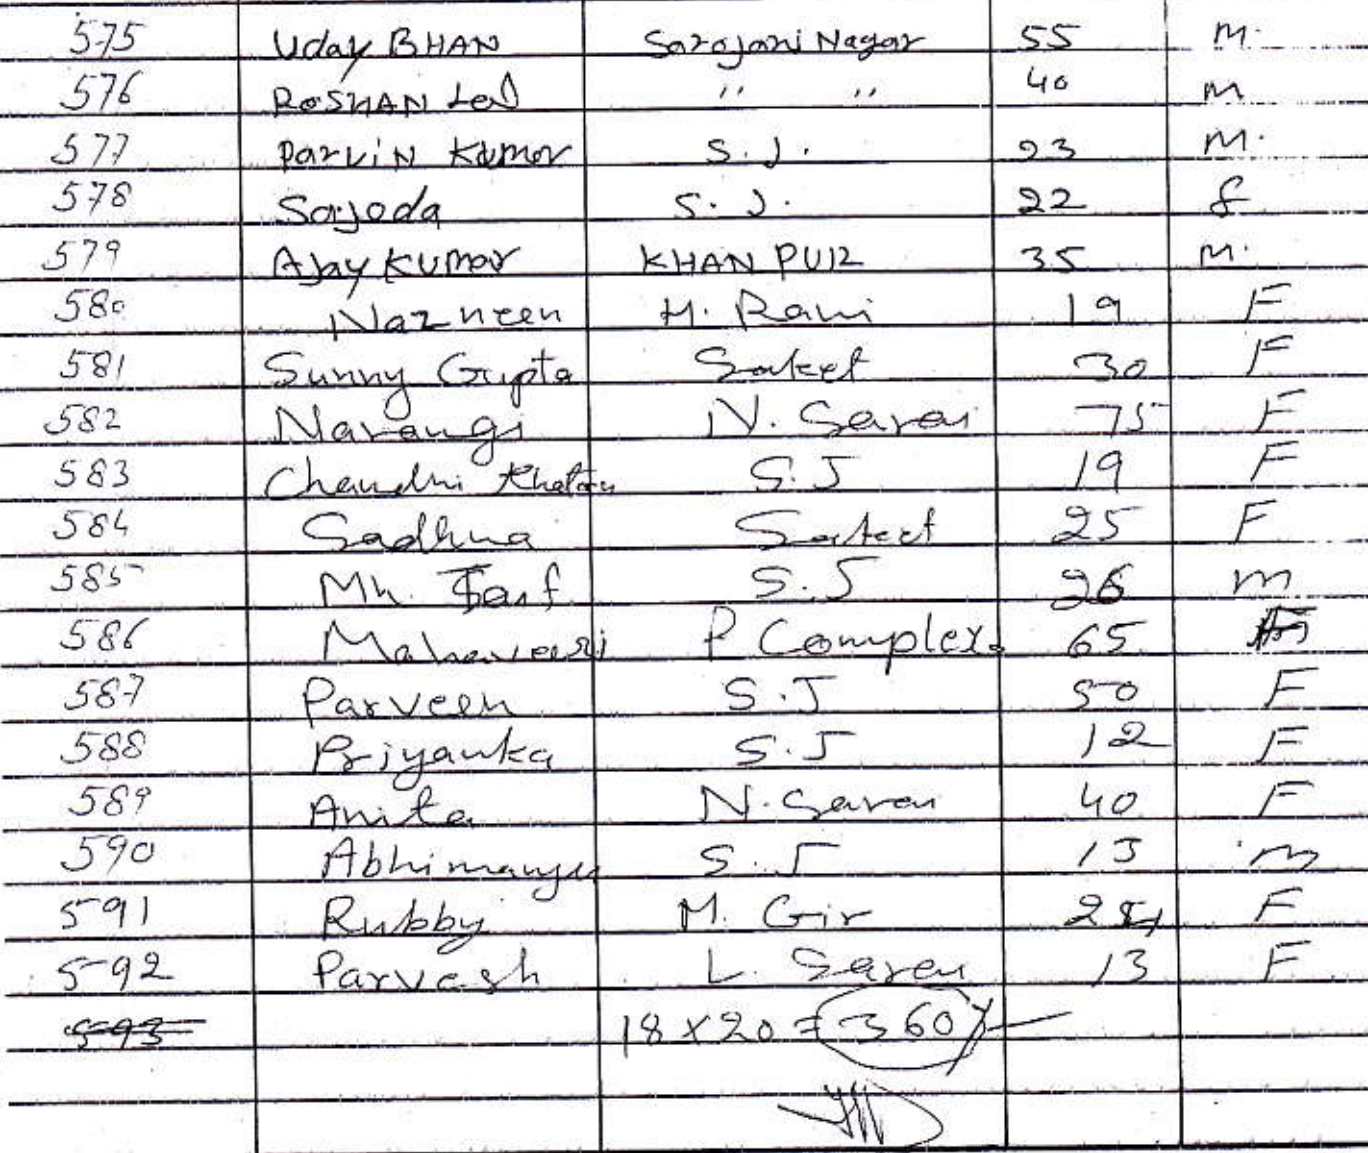 575 Uday BHAN Sarojani Nagar 55 M.
576 ROSHAN Lal " " 40 M
577 ParviN Kumar S.J. 23 M.
578 Sajoda S.J. 22 f
579 Ajay KUMar KHANPUR 35 M.
580 Nazneen H. Rani 19 F
581 Sunny Gupta Saket 30 F
582 Narangi N. Sarai 75 F
583 Chandni Khatoon S.J 19 F
584 Sadhna Saket 25 F
585 Mh. S.J 26 m
586 Mahaveeri P Complex. 65
587 Parveen S.J 50 F
588 Priyanka S.J 12 F
589 Anita N. Sarai 40 F
590 Abhimanyu S.J 13 m
591 Rubby M. Gir F
592 Parvesh L. Sarai 13 F
593
18 x 20 = 360/-